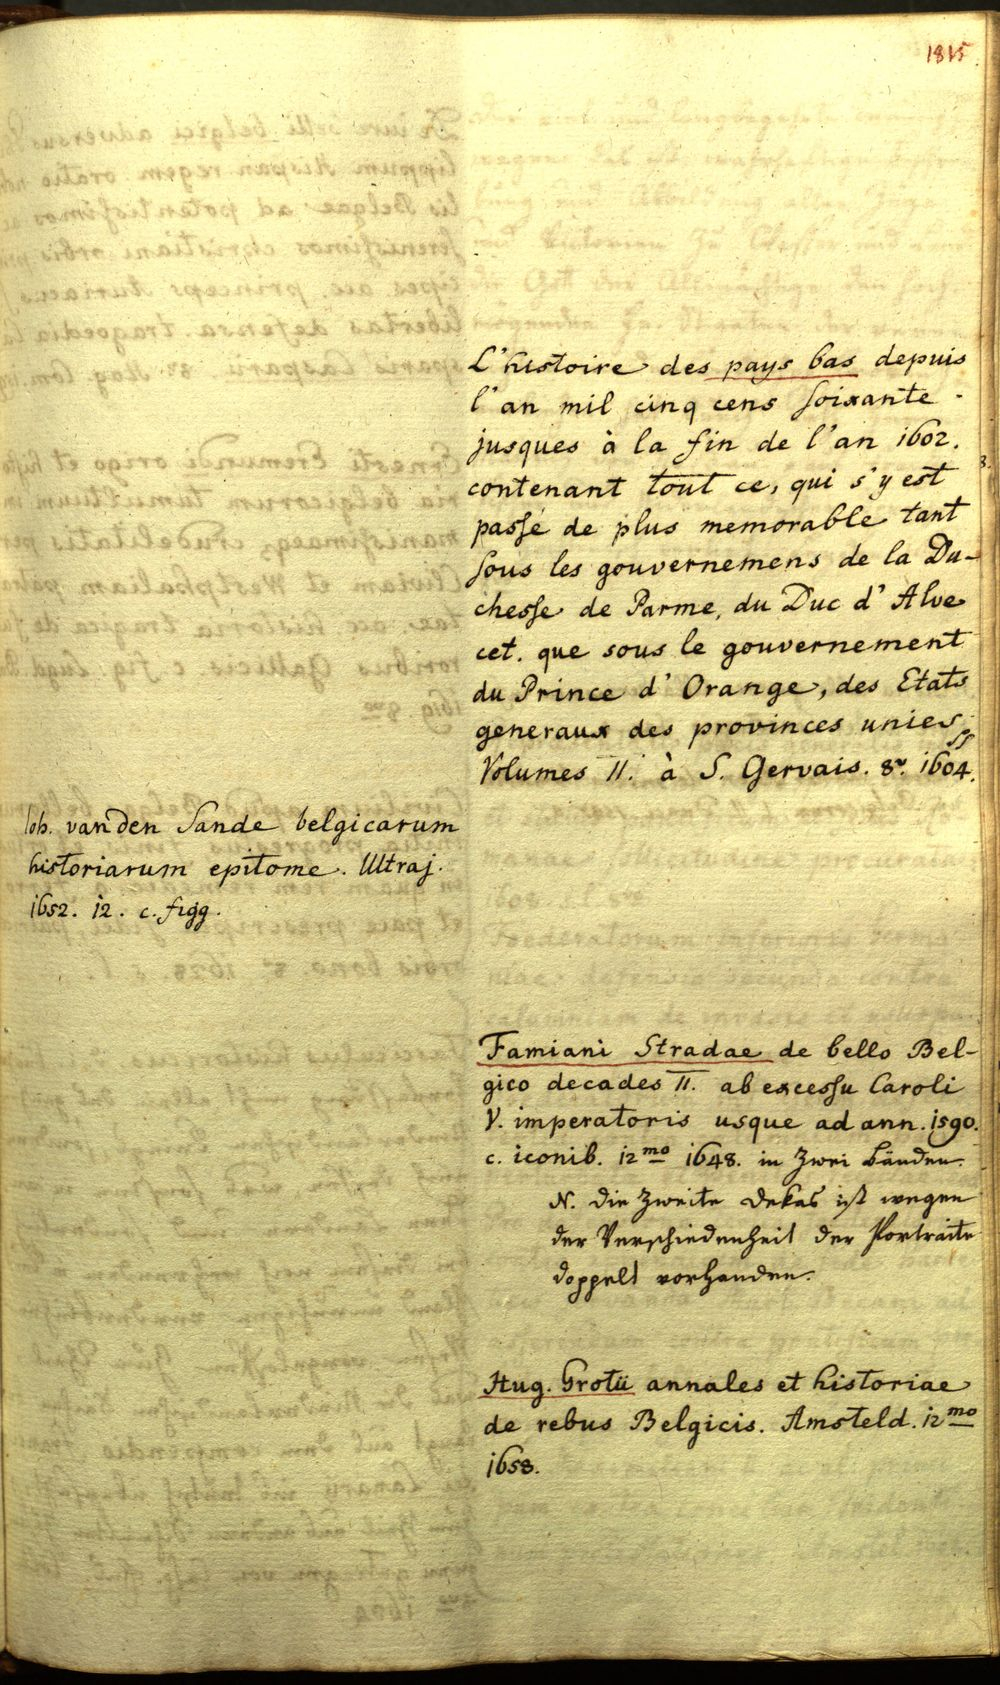 1815
L'histoire des pays bas depuis
l'an mil cinq cens soixante
jusques à la fin de l'an 1602.
contenant tout ce, qui s'y est
passé de plus memorable tant
sous les gouvernemens de la Du-
chesse de Parme, du Duc d'Alve
cet. que sous le gouvernement
du Prince d'Orange, des Etats
generaux des provinces unies
Volumes II. à S. Gervais. 8º. 1604.
Joh. van den Sande belgicarum
historiarum epitome. Ultraj.
1652. 12. c. figg.
Famiani Stradae de bello Bel-
gico decades II. ab excessu Caroli
V. imperatoris usque ad ann. 1590.
c. iconib. 12mo 1648. in zwei bänden.
N. die zweite Dekas ist wegen
der Verschiedenheit der Portraite
doppelt vorhanden.
Hug. Grotii annales et historiae
de rebus Belgicis. Amsteld. 12mo
1658.